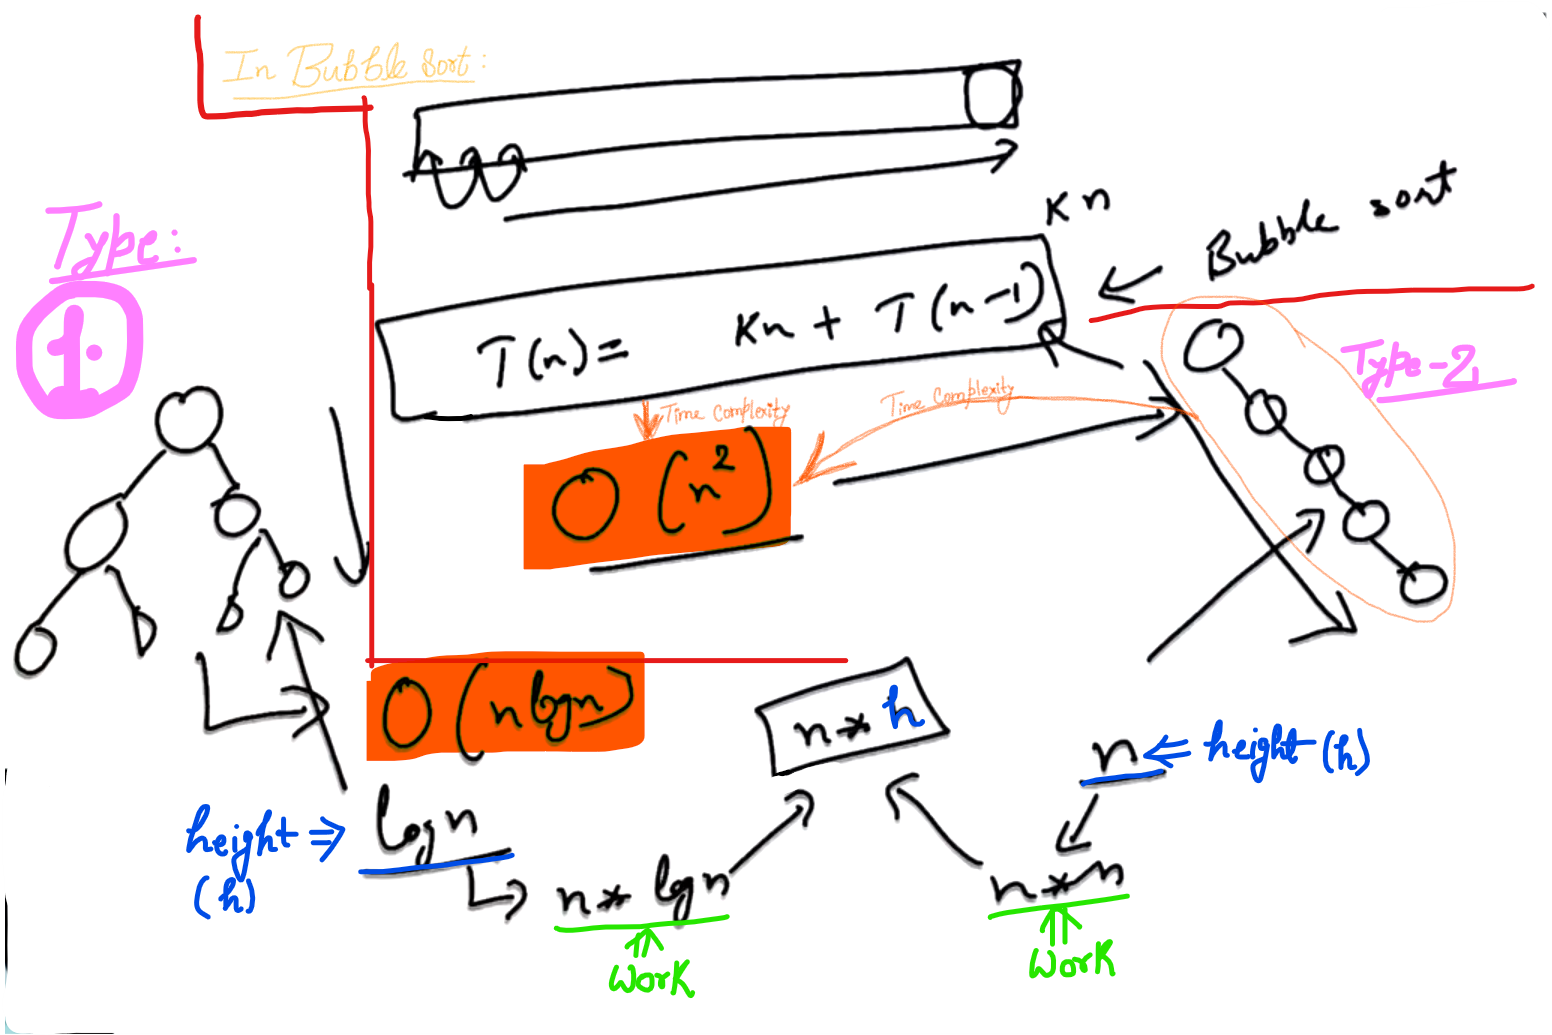 In Bubble Sort:
Kn
Bubble sort
Type:
1.
T(n)= Kn + T(n-1)
Type-2,
Time Complexity
Time Complexity
O(n²)
O(nlogn)
n*h
n ⇐ height (h)
height ⇒ logn
(h)
n* logn
n*n
Work
Work